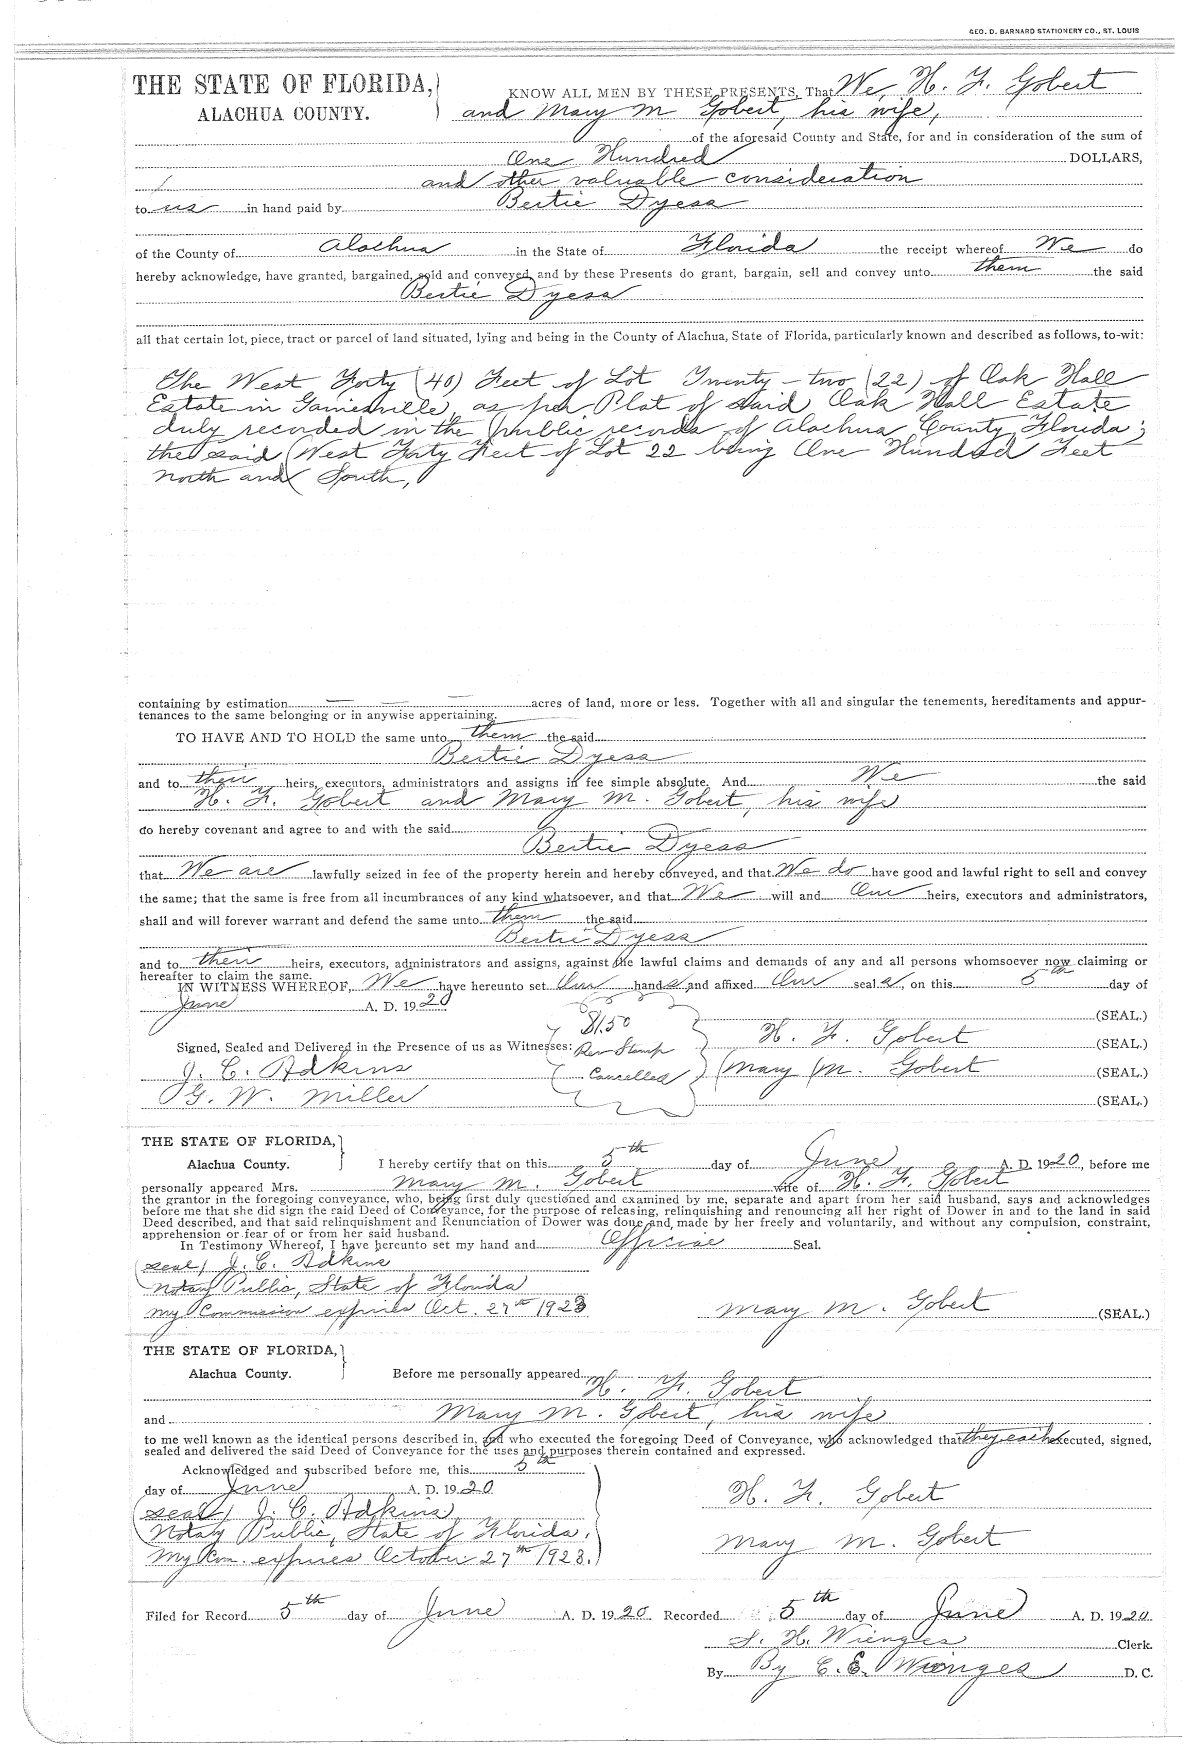 GEO. D. BARNARD STATIONERY CO., ST. LOUIS
THE STATE OF FLORIDA, KNOW ALL MEN BY THESE PRESENTS, That We, H. F. Gobert
ALACHUA COUNTY. and Mary M Gobert, his wife,
of the aforesaid County and State, for and in consideration of the sum of
One Hundred DOLLARS,
and other valuable consideration
to us in hand paid by Bertie Dyess
of the County of Alachua in the State of Florida the receipt whereof We do
hereby acknowledge, have granted, bargained, sold and conveyed, and by these Presents do grant, bargain, sell and convey unto them the said
Bertie Dyess
all that certain lot, piece, tract or parcel of land situated, lying and being in the County of Alachua, State of Florida, particularly known and described as follows, to-wit:
The West Forty (40) Feet of Lot Twenty-two (22) of Oak Hall
Estate in Gainesville, as per Plat of said Oak Hall Estate
duly recorded in the public records of Alachua County Florida;
the said West Forty Feet of Lot 22 being One Hundred Feet
North and South,
containing by estimation acres of land, more or less. Together with all and singular the tenements, hereditaments and appur-
tenances to the same belonging or in anywise appertaining.
TO HAVE AND TO HOLD the same unto them the said
Bertie Dyess
and to their heirs, executors, administrators and assigns in fee simple absolute. And We the said
H. F. Gobert and Mary M. Gobert, his wife
do hereby covenant and agree to and with the said
Bertie Dyess
that We are lawfully seized in fee of the property herein and hereby conveyed, and that We do have good and lawful right to sell and convey
the same; that the same is free from all incumbrances of any kind whatsoever, and that We will and Our heirs, executors and administrators,
shall and will forever warrant and defend the same unto them the said
Bertie Dyess
and to their heirs, executors, administrators and assigns, against the lawful claims and demands of any and all persons whomsoever now claiming or
hereafter to claim the same.
IN WITNESS WHEREOF, We have hereunto set Our hands and affixed Our seals, on this 5th day of
June A. D. 1920
$1.50 (SEAL.)
Signed, Sealed and Delivered in the Presence of us as Witnesses: Rev Stamp H. F. Gobert (SEAL.)
J. C. Adkins Cancelled Mary M. Gobert (SEAL.)
G. W. Miller (SEAL.)
THE STATE OF FLORIDA,
Alachua County. I hereby certify that on this 5th day of June A. D. 1920, before me
personally appeared Mrs. Mary M. Gobert wife of H. F. Gobert
the grantor in the foregoing conveyance, who, being first duly questioned and examined by me, separate and apart from her said husband, says and acknowledges
before me that she did sign the raid Deed of Conveyance, for the purpose of releasing, relinquishing and renouncing all her right of Dower in and to the land in said
Deed described, and that said relinquishment and Renunciation of Dower was done and, made by her freely and voluntarily, and without any compulsion, constraint,
apprehension or fear of or from her said husband.
In Testimony Whereof, I have hereunto set my hand and Official Seal.
(seal) J. C. Adkins
Notary Public, State of Florida
My Commission expires Oct. 27th 1923 Mary M. Gobert (SEAL.)
THE STATE OF FLORIDA,
Alachua County. Before me personally appeared
H. F. Gobert
and Mary M. Gobert, his wife
to me well known as the identical persons described in, and who executed the foregoing Deed of Conveyance, who acknowledged that they each executed, signed,
sealed and delivered the said Deed of Conveyance for the uses and purposes therein contained and expressed.
Acknowledged and subscribed before me, this 5th
day of June A. D. 1920 H. F. Gobert
(seal) J. C. Adkins
Notary Public, State of Florida. Mary M. Gobert
My Com. expires October 27th 1923.
Filed for Record 5th day of June A. D. 1920 Recorded 5th day of June A. D. 1920
S. H. Wienges Clerk.
By By C. E. Wienges D. C.